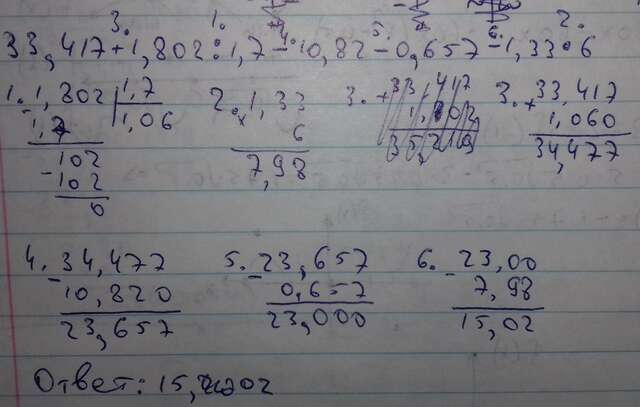 3. 1. 4. 5. 6. 2.
33,417+1,802:1,7-10,82-0,657-1,33·6
1. 1,802 | 1,7 2. 1,33 3. + 33,417 3. + 33,417
- 1,7 1,06 x 6 1,802 1,060
102 7,98 35,219 34,477
- 102
0
4. - 34,477 5. - 23,657 6. - 23,00
10,820 0,657 7,98
23,657 23,000 15,02
Ответ: 15,02